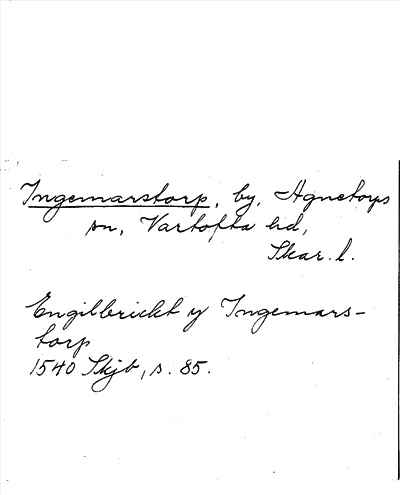 Ingemarstorp, by, Agnetorps
sn, Vartofta hd,
Skar. l.
Engilbrickt y Ingemars-
torp
1540 Skjb, s. 85.